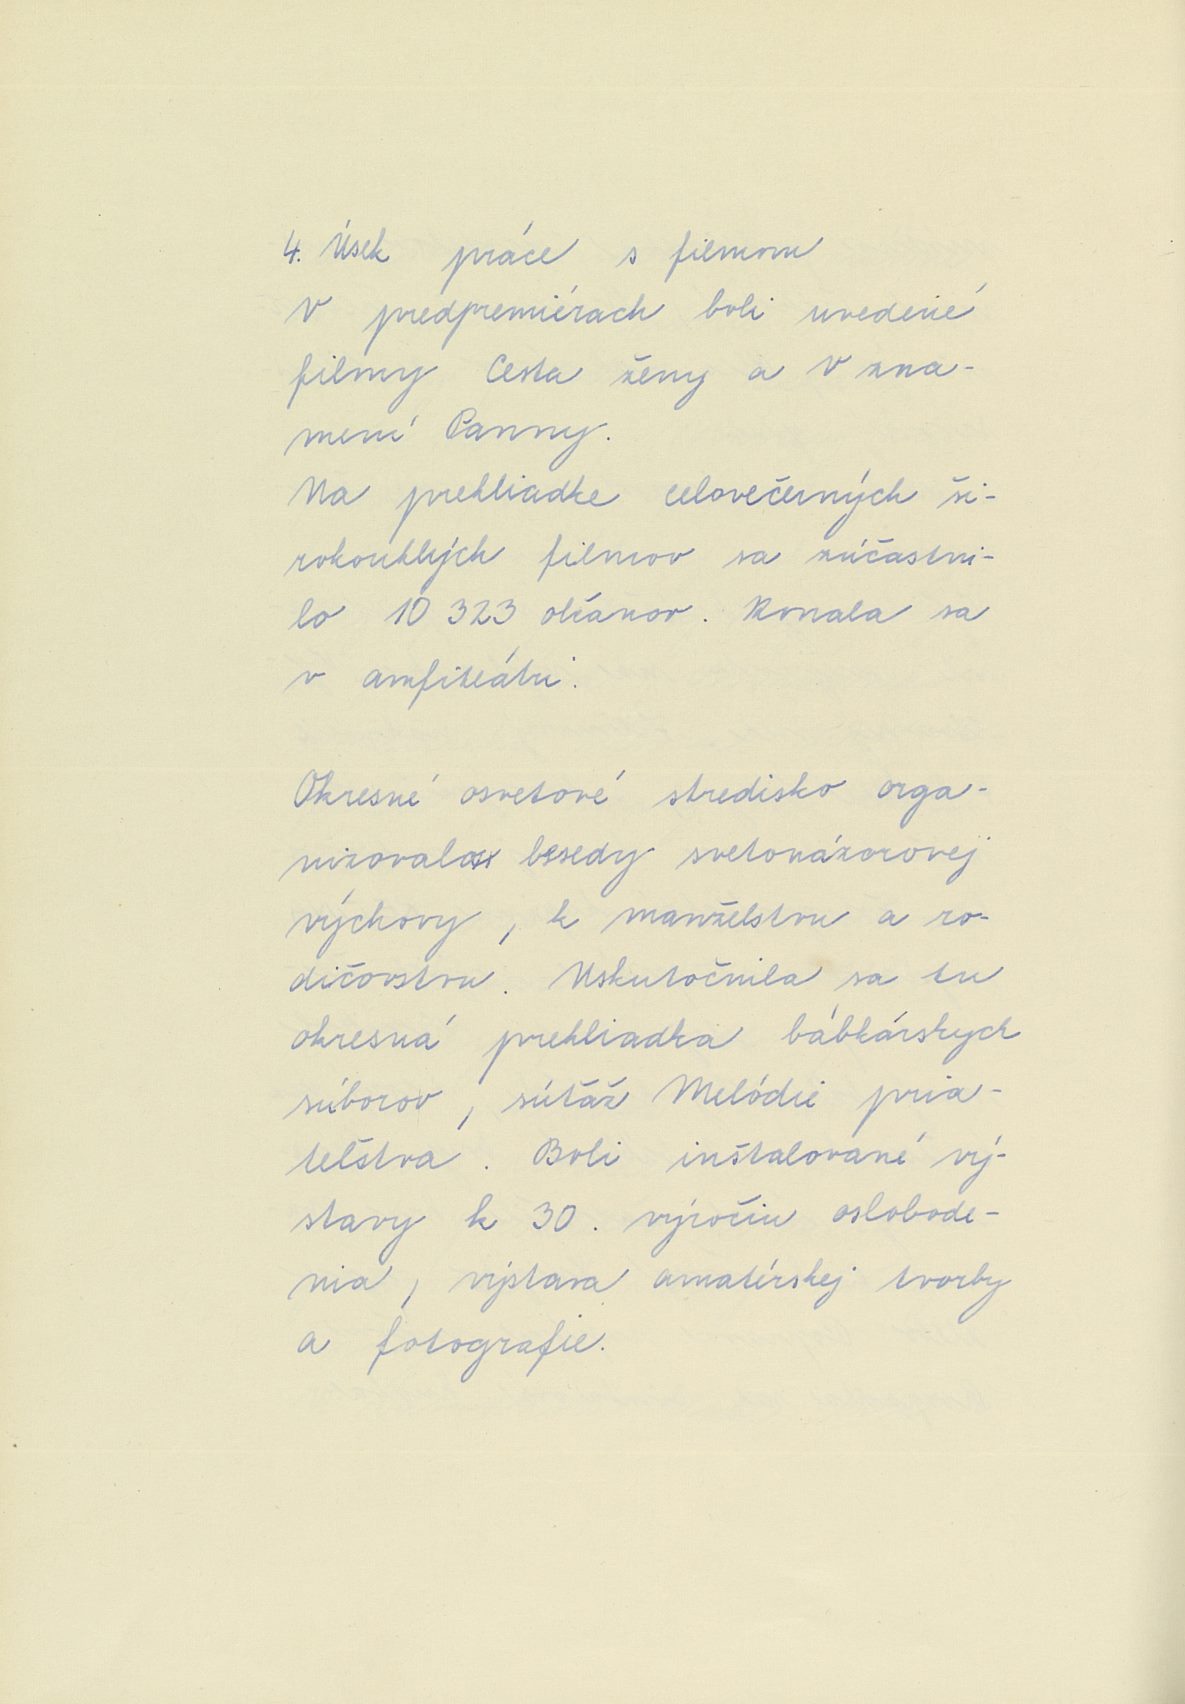 4. Úsek práce s filmom
V predpremiérach boli uvedené
filmy Cesta ženy a V zna-
mení Panny.
Na prehliadke celovečerných ši-
rokouhlých filmov sa zúčastni-
lo 10 323 občanov. Konala sa
v amfiteátri.
Okresné osvetové stredisko orga-
nizovalo besedy svetonázorovej
výchovy, k manželstvu a ro-
dičovstvu. Uskutočnila sa tu
okresná prehliadka bábkárskych
súborov, súťaž Melódie pria-
teľstva. Boli inštalované vý-
stavy k 30. výročiu oslobode-
nia, výstava amatérskej tvorby
a fotografie.